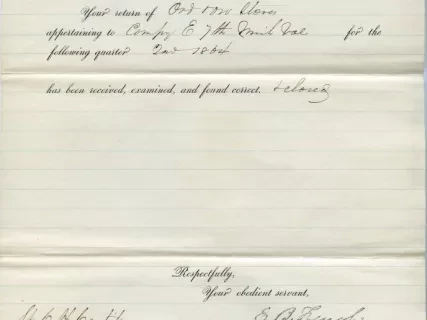 Your return of Ord & Ord Stores
appertaining to Compy E. 7th Vol for the
following quarter 2nd 1864
has been received, examined, and found correct. & closed
Respectfully,
Your obedient servant,
E. B. French